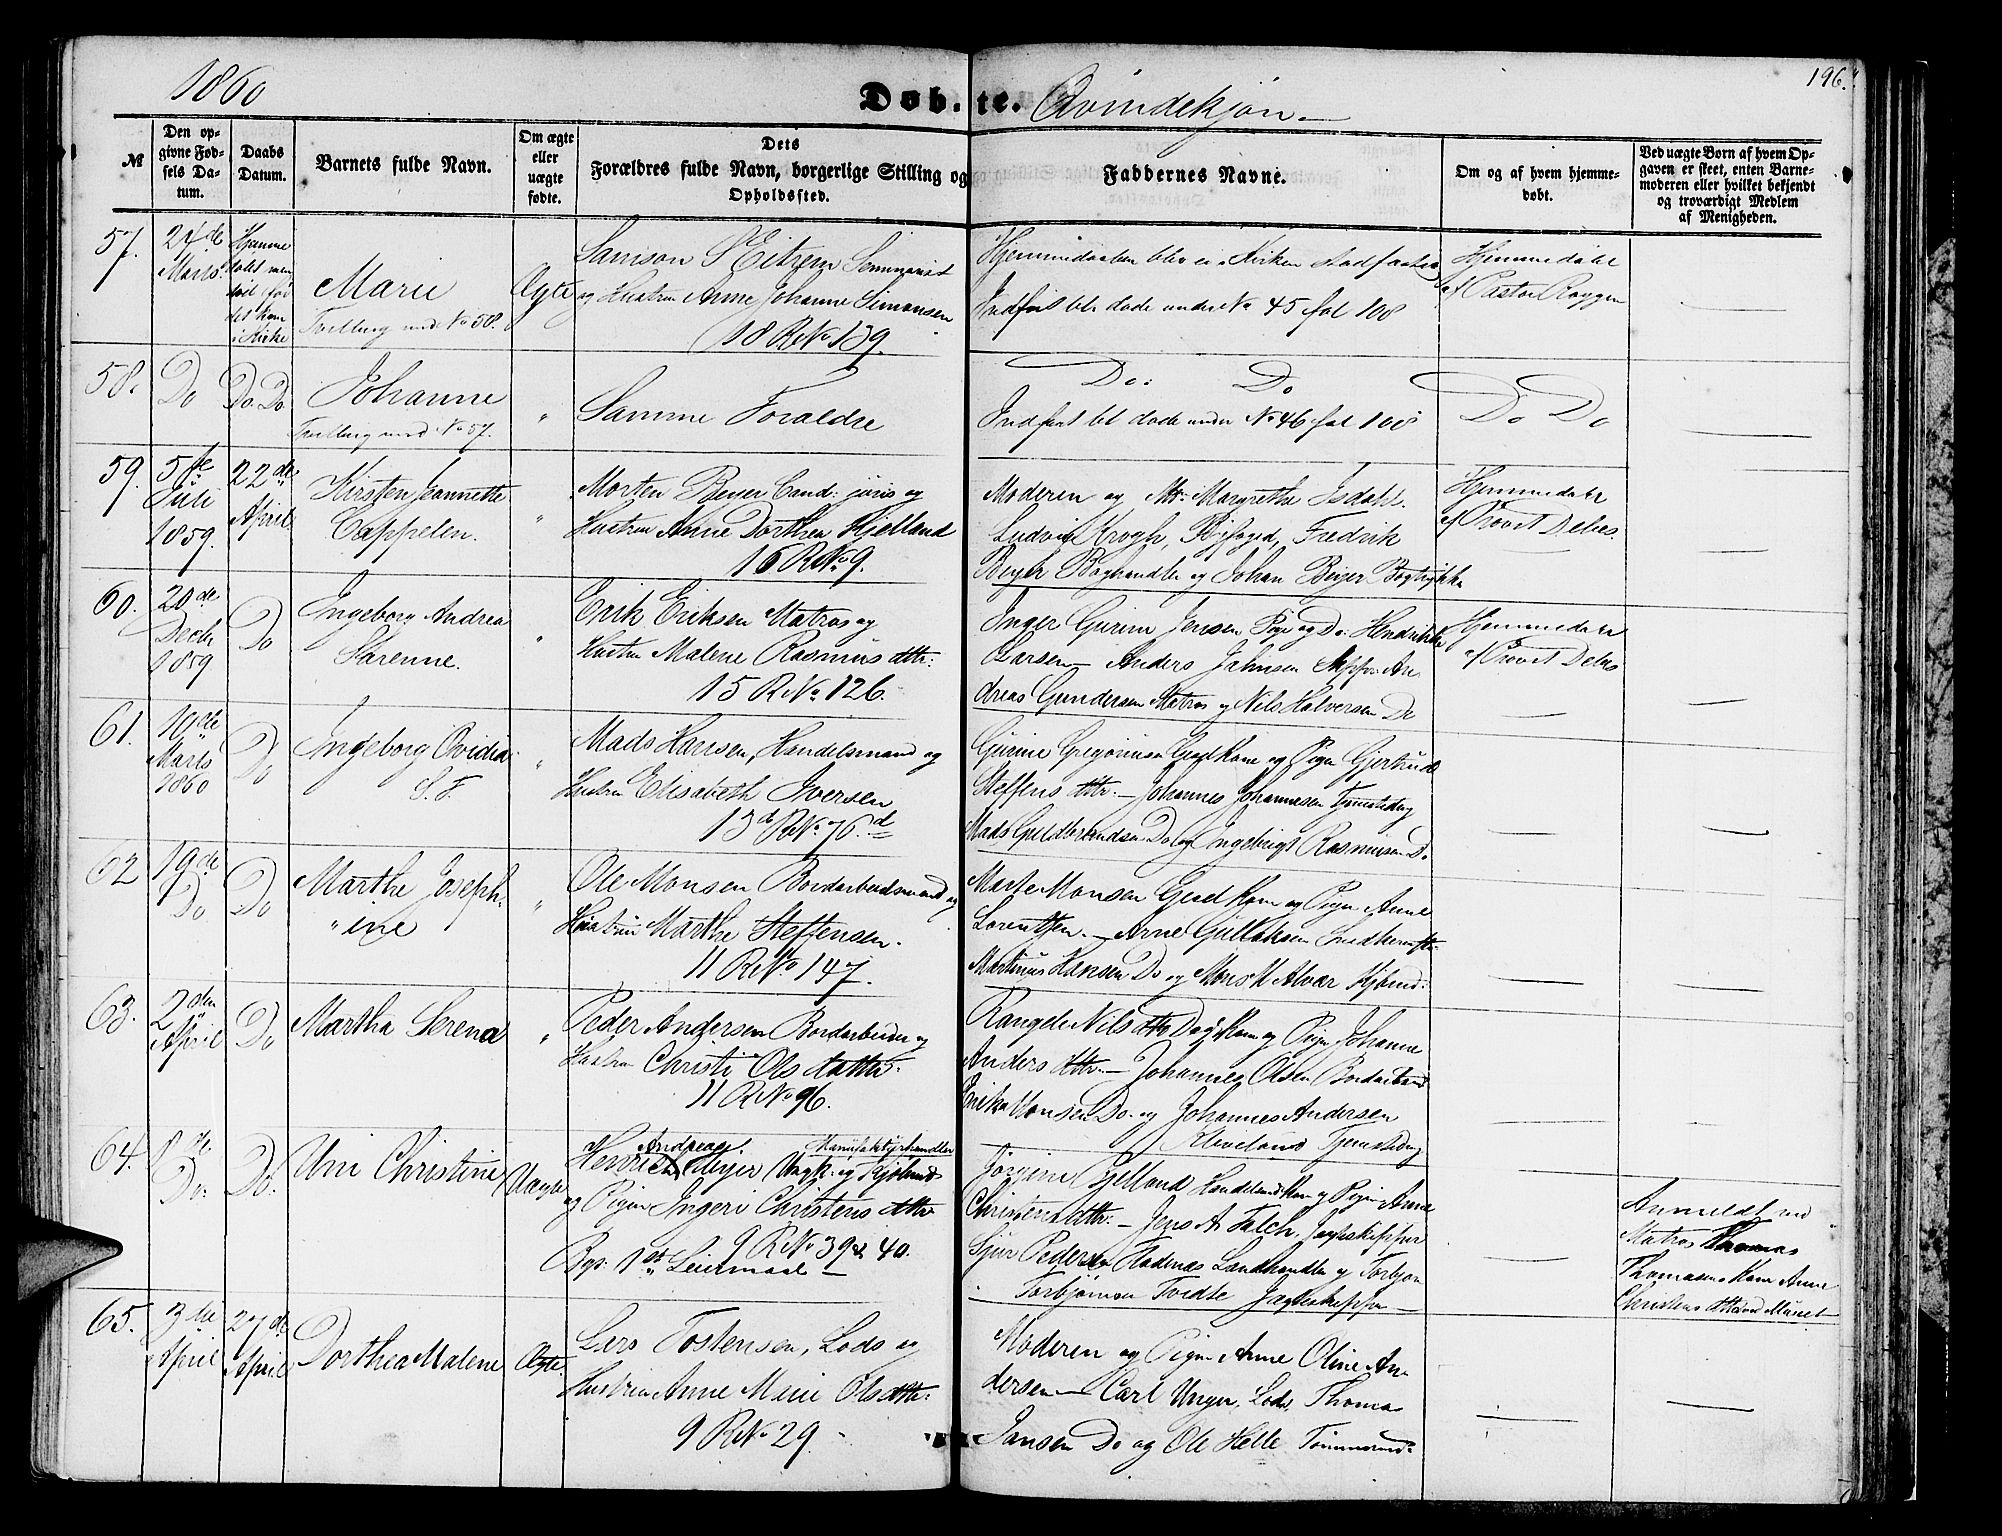 1860
Døb-te. Qvindekjøn.
196.
№
Den opgivne Fødsels Datum.
Daabs Datum.
Barnets fulde Navn.
Om ægte eller uægte fødte.
Dets Forældres fulde Navn, borgerlige Stilling og Opholdssted.
Faddernes Navne.
Om og af hvem hjemmedøbt.
Ved uægte Børn af hvem Opgaven er skeet, enten Barnemoderen eller hvilket bekjendt og troværdigt Medlem af Menigheden.
57.
24de
Marts
Hjemme
det kom
i Kirke
Marie
Tvilling med No 58.
Ægte
Samson S Eitzem Seminarist
og Hustru Anne Johanne Simonsen
18 R No 139.
Hjemmedaaben blev ei i Kirken stadfæstet
Indført bl: døde under No 45 fol 108
Hjemmedøbt
af Pastor
58.
Do
Do. Do
Johanne
Tvilling med No 57.
"
Samme Forældre
Do: Do
Indført bl døde under No 46 fol 108
Do Do
59.
5te
Juli
1859.
22de
April
Kirsten Jeannette
Cappelen.
"
Morten Beyer Cand: juris og
Hustru Anne Dorthea Kjelland
16 R No 9.
Moderen og M: Margrethe Isdahl.
Ludvig Krogh, Byfoged, Fredrik
Beyer Boghandler og Johan Beyer Bogtrykker
Hjemmedøbt
af Provst Debes.
60.
20de
Decbr
1859
Do
Ingeborg Andrea
Sørenne.
"
Erik Eriksen Matros og
Hustru Malene Rasmus dtr:
15 R No 126.
Inger Gurine Jensen Pige og Do: Hendrikke
Larsen – Anders Jahnsen Skipp: An
dreas Gundersen Matros og Nils Halversen Do
Hjemmedøbt
af Provst Debes
61.
10de
Marts
1860
Do
Ingeborg Ovidia
S. F.
"
Mads Hansen, Handelsmand og
Hustru Elisabeth Iversen
13de R No 76.d
Gurine Gregoriusen Kone og Pigen Gjertrud
Steffens dtr. – Johannes Johannesen Tjenestedreng
Mads Guldbrandsen Do og Ingebrigt Rasmusen Do
62
19de
Do
Do
Marthe Joseph-
"ine
"
Ole Monsen Bordarbeidsmand og
Hustru Marthe Steffensen.
11 R No 147.
Marte Monsen Kone og Pigen Anne
Lorentsen. – Arne Gulleksen
Martinius Hansen Do og Mons M Alvær Kjøbmd:
63.
2den
April
Do
Martha Serena
"
Peder Andersen Bordarbeider og
Hustru Christi Olsdatter.
11 R No 96.
Rangele Nils dtr Dag: Kone og Pigen Johanne
Anders dtr: – Johannes Olsen Bordarb
Erik Monsen Do. og Johannes Andersen
Kleveland Tjenestedreng
64.
8de
Do.
Do.
Uni Christine
Uægte
Andreas Manufakturhandler
Henrich Meyer Ungk: og Kjøbmd
og Pigen Ingeri Christens dtr
9 R No 39 & 40.
Bgs: 1st Leiermaal
Jørgine Gjelland Handelsmd: Kone og Pigen Anne
Christens dtr: – Jens A Falch, Jagteskipper
Sjur Pedersen Fladenæs Landhandler og Torbjørn
Torbjørnsen Tvedte Jagteskipper
Anmeldt ved
Matros Thomas
Thomasens Kone Anne
Christens dtr
65.
3die
April
27de
April
Dorthea Malene
Ægte.
Lars Tostensen, Lods og
Hustru Anne Marie Olsdtr:
9 R No 29.
Moderen og Pigen Anne Oline An
dersen – Carl Unger, Lods, Thomas
Jansen Do og Ole Helle Tømmermd: